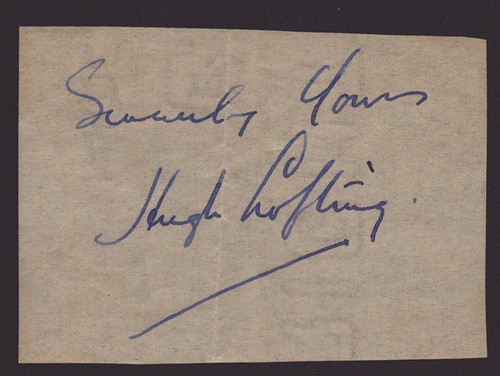 Sincerely Yours
Hugh Lofting.